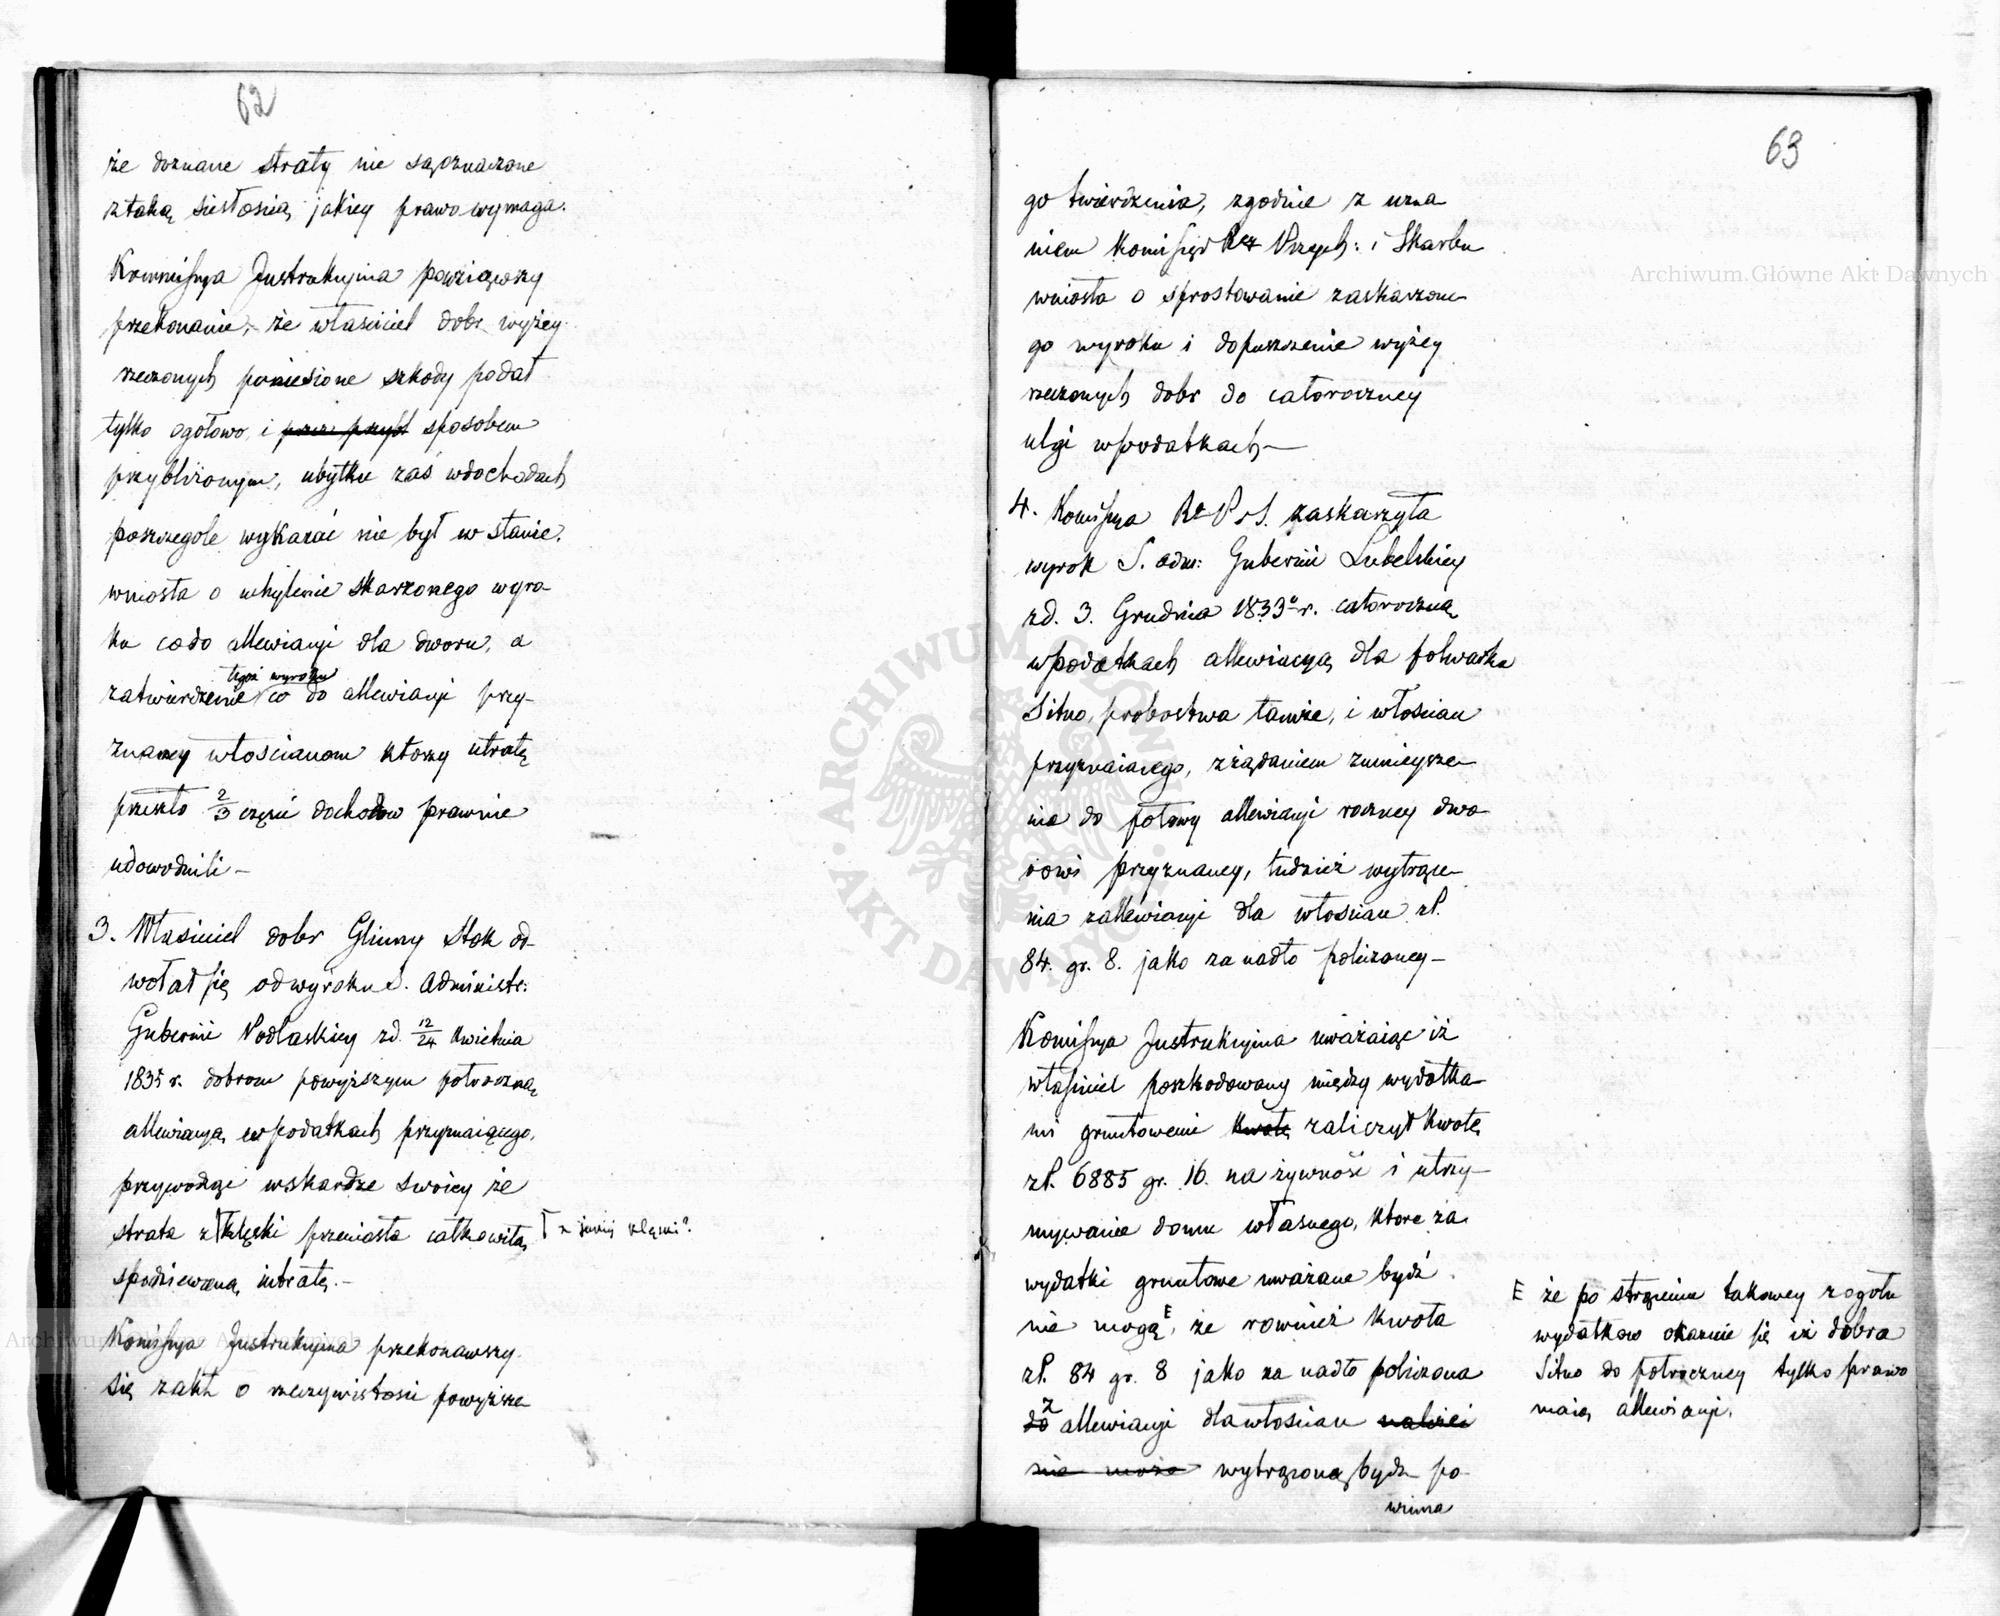 62
że doznane straty nie są oznaczone
z taką ścisłością jakiey prawo wymaga.
Kommissya Instrukcyjna powziąwszy
przekonanie, że właściciel dobr wyżey
rzeczonych poniesione szkody podał
tylko ogołowo i przez przybl sposobem
przybliżonym, ubytku zaś w dochodach
poszczegole wykazać nie był w stanie,
wniosła o uchylenie skarzonego wyro-
ku co do allewiacyi dla dworu, a
tegoż wyroku
zatwierdzenie co do allewiacyi przy-
znaney włościanom ktorzy utratę
przeszło 2/3 części dochodow prawnie
udowodnili –
3. Właściciel dobr Glinny Stok od-
wołał się od wyroku S. Administr:
Gubernii Podlaskiey z d. 12/24 Kwietnia
1835 r. dobrom powyższym połroczną
allewiacyą w podatkach przyznaiącego,
przywodząc w skardze swoiey że
strata z klęski przeniosła całkowitą
z jakiej klęski?
spodziewaną intratę. –
Komissya Instrukcyjna przekonawszy
się z akt o rzeczywistości powyższe
63
go twierdzenia, zgodnie z uzna
niem Komissyi Rz Przych: i Skarbu
wniosła o sprostowanie zaskarzone-
go wyroku i dopuszczenie wyżey
rzeczonych dobr do całoroczney
ulgi w podatkach –
4. Komissya Rz P i S. zaskarzyła
wyrok S. adm: Gubernii Lubelskiey
z d. 3. Grudnia 1833 r. całoroczną
w podatkach allewiacyą dla folwarku
Sitno, probostwa tamże, i włościan
przyznaiącego, z żądaniem zmnieysze-
nia do połowy allewiacyi roczney dwo-
rowi przyznaney, tudzież wytrące-
nia z allewiacyi dla włościan zł.
84. gr. 8. jako za nadto policzoney –
Komissya Instrukcyjna uważaiąc iż
właściciel poszkodowany między wydatka-
mi gruntowemi kwotę zaliczył kwotę
zł. 6885 gr. 16. na żywność i utrzy-
mywanie domu własnego, ktore za
wydatki gruntowe uważane bydź
nie mogą E, że rownież kwota
zł. 84 gr. 8 jako za nadto policzona
do z allewiacyi dla włościan należeć
nie może wytrąconą bydź po-
winna
E że po strąceniu takowey z ogołu
wydatkow okazuie się iż dobra
Sitno do połroczney tylko prawo
maią allewiacyi.
Archiwum Główne Akt Dawnych
Archiwum Główne Akt Dawnych
ARCHIWUM GŁÓWNE · AKT DAWNYCH ·